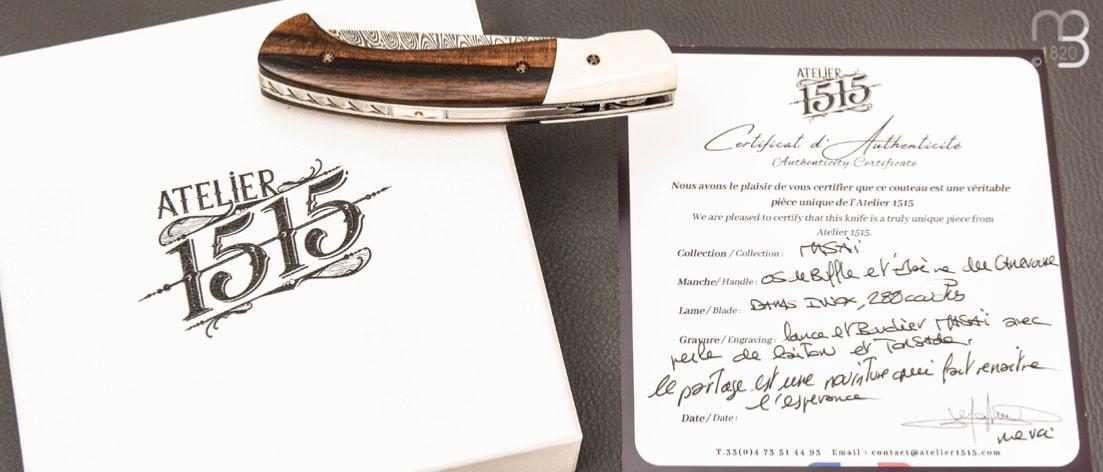 ATELIER
1515
mB
© 820
ATELIER
1515
Certificat d'Authenticité
Authenticity Certificate
Nous avons le plaisir de vous certifier que ce couteau est une véritable
pièce unique de l'Atelier 1515
We are pleased to certify that this knife is a truly unique piece from
Atelier 1515.
Collection / Collection : MASAÏ
Manche / Handle : os de Buffle et ébène du
Lame / Blade : DAMAS INOX, 288 couches
Gravure / Engraving : lance et Bouclier MASAÏ avec
perle de laiton et Torsade.
le partage est une nourriture qui fait renaitre
l'espérance
Date / Date :
merci
T.33(0)4 73 51 44 93 Email : contact@atelier1515.com